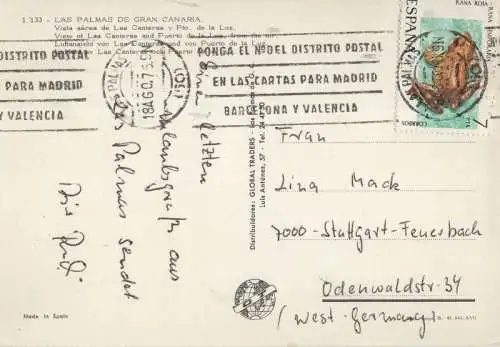 1.133 - LAS PALMAS DE GRAN CANARIA.
Vista aérea de Las Canteras y Pto. de la Luz.
View of Las Canteras and Puerto de la Luz, from the air
Luftansicht von Las Canteras und von Puerto de la Luz
DISTRITO POSTAL
PARA MADRID
Y VALENCIA
LAS PALMAS
18 AGO. 7
PONGA EL Nº DEL DISTRITO POSTAL
EN LAS CARTAS PARA MADRID
BARCELONA Y VALENCIA
RANA ROJA
ESPAÑA
CORREOS
7
PTS
Einen letzten
Urlaubsgruß aus
Las Palmas sendet
Distribuidores: GLOBAL TRADERS
Luis Antúnez, 57 - Tel. 24 41 30
Frau
Lina Mack
7000-Stuttgart-Feuerbach
Odenwaldstr. 34
(West-Germany)
Made in Spain